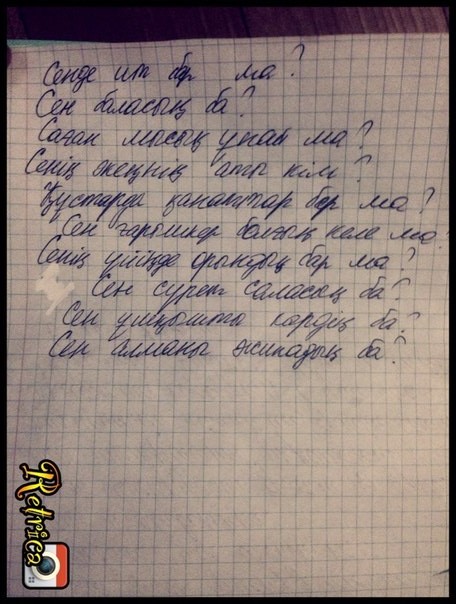 Сенде ит бар ма?
Сен баласың ба?
Саған мысық ұнай ма?
Сенің әкеңнің аты кім?
Құстарда қанаттар бар ма?
Сен ғарышкер болғың келе ма
Сенің үйіңде орындық бар ма?
Сен сурет саласың ба?
Сен ұшқышты көрдің ба?
Сен алманы жинадың ба?
Retrica